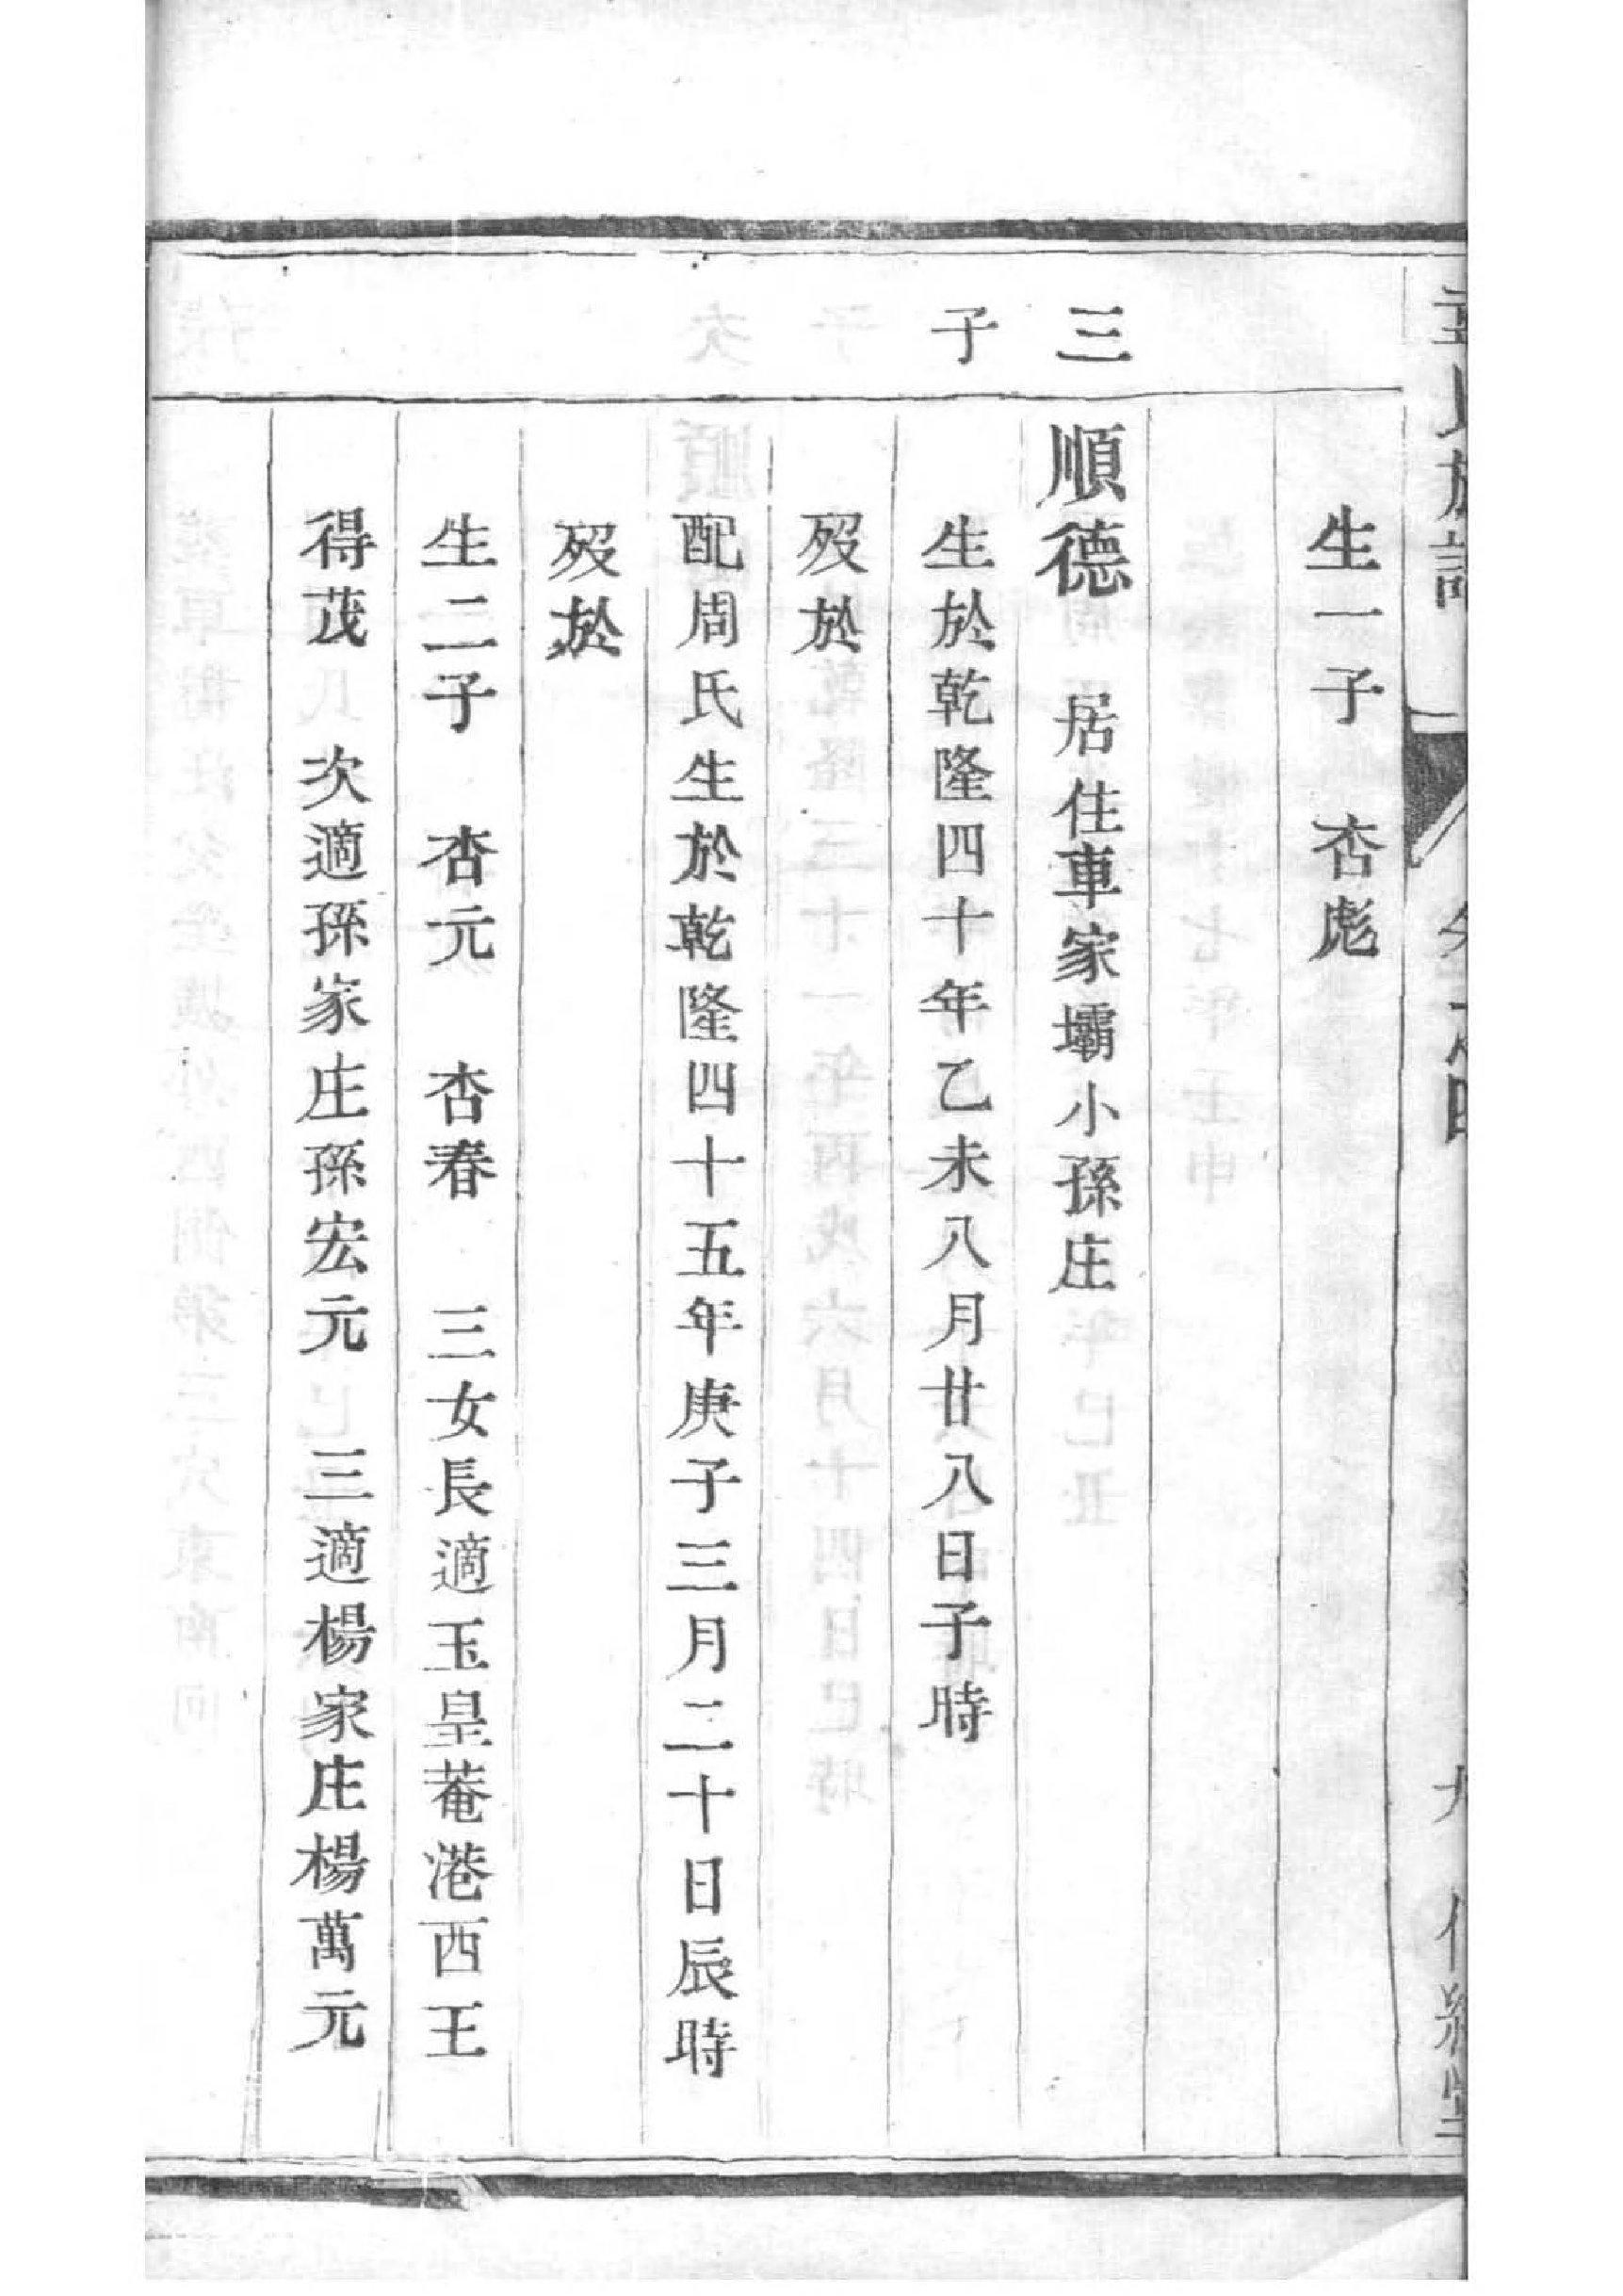 氏族譜
生一子 杏彪
三 順德 居住車家壩小孫庄
子 生於乾隆四十年乙未八月廿八日子時
歿於
配周氏生於乾隆四十五年庚子三月二十日辰時
歿於
生二子 杏元 杏春 三女長適玉皇菴港西王
得茂 次適孫家庄孫宏元 三適楊家庄楊萬元